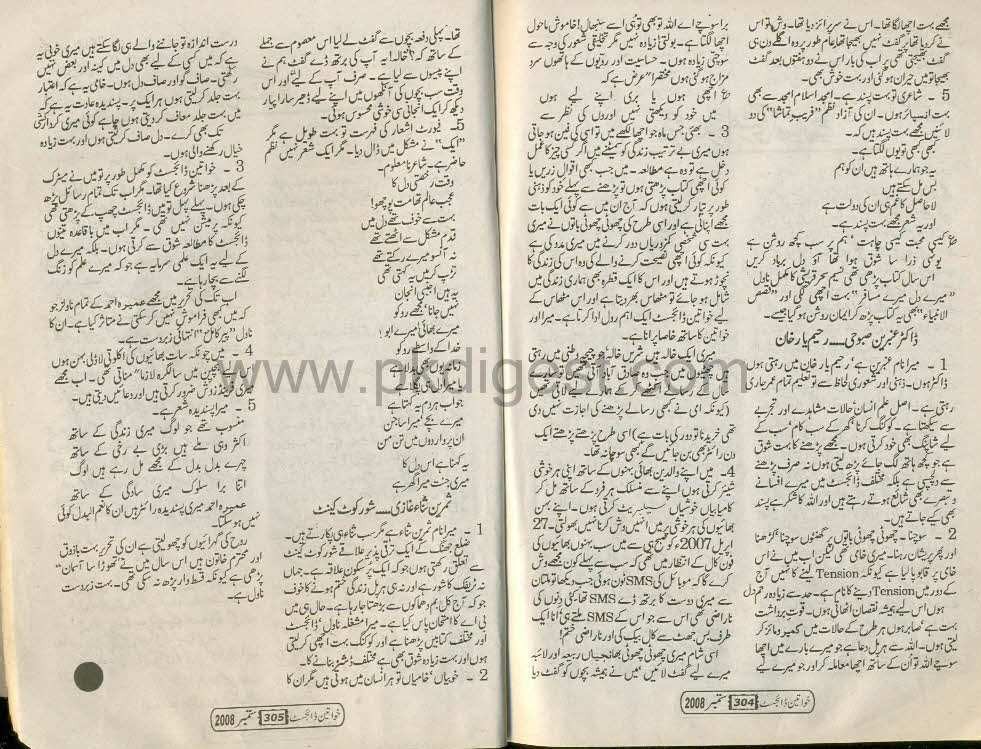 مجھے بہت اچھا لگتا تھا۔ اس نے سرپرائز دیا تھا۔ وش تو اس
نے کر دیا تھا پر گفٹ نہیں بھیجا تھا عام طور پر وہ اگلے دن ہی
گفٹ بھیجتی تھی پر اب کی بار اس نے دو ہفتوں بعد گفٹ
بھیجا تو میں حیران ہو گئی اور بہت خوش بھی۔
5 - شاعری تو بہت پسند ہے۔ امجد اسلام امجد سے بھی
بہت انسپائر ہوں۔ ان کی آزاد نظم "فریب تماشا" کی دو
لائنیں مجھے بہت پسند ہیں کہ۔
کبھی کبھی تو یوں لگتا ہے۔
یہ جو ہمارے ہاتھ ہیں ان کو ہم
بس مل سکتے ہیں
لاحاصل کا غم ہی ان کی دولت ہے
اور یہ شعر مجھے بہت پسند ہے۔
کیسی محبت کیسی چاہت، ہم پر سب کچھ روشن ہے
یوں ہی ذرا سا شوق ہوا تھا آؤ دل برباد کریں
اس سال کتاب پڑھی تھی تسیم سحر قریشی کا مکمل ناول
"میرے دل میرے مسافر" بہت اچھی لگی اور "قصص
الانبیاء" بھی یہ کتاب پڑھ کر ایمان روشن ہو گیا جیسے۔
ڈاکٹر عنبرین صبوحی.... رحیم یار خان
1 - میرا نام عنبرین ہے رحیم یار خان میں رہتی ہوں
ڈاکٹر ہوں۔ ذہنی اور شعوری لحاظ سے تو تعلیم تمام عمر جاری
رہتی ہے۔ اصل علم انسان حالات مشاہدے اور تجربے
سے سیکھتا ہے۔ کوکنگ کرنا، گھر کے سب کام، سب کے
لیے شاپنگ بھی خود کرتی ہوں۔ مجھے پڑھنے کا بہت شوق
ہے جو کچھ ہاتھ لگ جائے پڑھ لیتی ہوں نہ صرف پڑھنے
سے دلچسپی ہے بلکہ مختلف ڈائجسٹ میں میرے افسانے
وغیرہ بھی شائع ہوتے رہتے ہیں اور اللہ کا شکر ہے پسند
بھی کیے جاتے ہیں۔
2 - سوچنا۔ چھوٹی چھوٹی باتوں پر گھنٹوں سوچنا، کڑھنا
اور پھر پریشان رہنا۔ میری خامی تھی لیکن اب میں نے اس
خامی پر قابو پا لیا ہے کیونکہ Tension لینے کا نہیں آج
کے دور میں Tension دینے کا نام ہے۔ حد سے زیادہ رحم دل
ہوں اس لیے ہمیشہ نقصان اٹھاتی ہوں۔ قوت برداشت
بہت ہے، صابر ہوں ہر طرح کے حالات میں کمپرومائز کر
لیتی ہوں۔ اللہ سے ہر پل دعا ہے جو میرے بارے میں اچھا
سوچے اللہ تو اس کے ساتھ اچھا معاملہ کر اور جو میرے لیے
برا سوچے اے اللہ تو بھی تو ہی اسے سنبھال! خاموش ماحول
اچھا لگتا ہے۔ بولتی زیادہ نہیں مگر تخلیقی شعور کی وجہ سے
سوچتی زیادہ ہوں۔ حساسیت اور رویوں کے ہاتھوں سرد
مزاج ہو گئی ہوں مختصراً عرض ہے کہ
اچھی ہوں یا بری اپنے لیے ہوں
میں خود کو دیکھتی نہیں اوروں کی نظر سے
3 - بھئی جس ماہ جو اچھا لکھے میں تو اسی کی فین ہو جاتی
ہوں میری بے ترتیب زندگی کو سمیٹنے میں اگر کسی چیز کا عمل
دخل ہے تو وہ ہے مطالعہ۔ میں جب بھی اقوال زریں یا
کوئی اچھی کتاب پڑھتی ہوں تو پڑھنے سے پہلے خود کو ذہنی
طور پر تیار کر لیتی ہوں کہ آج ان میں سے کوئی ایک بات
مجھے اپنانی ہے اور اسی طرح کی چھوٹی چھوٹی باتوں نے میری
بہت سی شخصی کمزوریاں دور کرنے میں میری مدد کی ہے
کیونکہ کوئی اچھی نصیحت کرنے والے کی وہ اس کی زندگی کا
نچوڑ ہوتے ہیں اور اس کا ایک قطرہ بھی ہماری زندگی میں
شامل ہو جائے تو مٹھاس بھر دیتا ہے اور اس مٹھاس کے
لیے خواتین ڈائجسٹ ایک اہم رول ادا کرتا ہے۔ میرا اور
خواتین کا ساتھ خاصا پرانا ہے۔
میری ایک خالہ ہیں شریں خالہ! جو چیچہ وطنی میں رہتی
(کیونکہ امی نے بھی رسالے پڑھنے کی اجازت نہیں دی
تھی خریدنا تو دور کی بات ہے) اسی طرح پڑھتے پڑھتے ایک
دن رائٹر بھی بن جائیں گے کبھی سوچا نہ تھا۔
4 - میں اپنے والدین بھائی بہنوں کے ساتھ اپنی ہر خوشی
شیئر کرتی ہوں اپنے سے منسلک ہر فرد کے ساتھ مل کر
کامیابیاں خوشیاں سیلیبریٹ کرتی ہوں۔ اپنے بہن
بھائیوں کی ہر خوشی پر میں انہیں وش کرنا نہیں بھولتی۔ 27
اپریل 2007ء کو صبح ہی سے میں سب بہنوں بھائیوں کی
فون کال کے انتظار میں تھی کہ سب سے پہلے کون مجھے وش
کرے گا کہ موبائل کی SMS ٹون ہوئی جب دیکھا تو ملتان
سے میری دوست کا برتھ ڈے SMS تھا کئی دنوں کی
ناراضی تھی اس سے جو اس کے SMS ملتے ہی انا ایک
طرف بس جھٹ سے کال بیک کی اور ناراضی ختم!
اسی شام میری چھوٹی چھوٹی بھانجیاں ربیعہ اور لائبہ
میرے لیے گفٹ لائیں، میں نے ہمیشہ بچوں کو گفٹ دیا
خواتین ڈائجسٹ 304 ستمبر 2008
تھا۔ پہلی دفعہ بچوں سے گفٹ لے لیا اس معصوم سے جملے
کے ساتھ کہ؟ "خالہ! یہ آپ کی برتھ ڈے گفٹ ہم نے
اپنے پیسوں سے لیا ہے۔ صرف آپ کے لیے" اور اس
وقت سب بچوں کی آنکھوں میں اپنے لیے ڈھیر سارا پیار
دیکھ کر ایک انجانی سی خوشی محسوس ہوئی۔
5 - فیورٹ اشعار کی فہرست تو بہت طویل ہے مگر
"ایک" نے مشکل میں ڈال دیا۔ مگر ایک شعر نہیں نظم
حاضر ہے۔ شاعر نامعلوم۔
وقت رخصتی دل کا
عجب عالم تھا مت پوچھو!
بہت سے خوف تھے دل میں
قدم مشکل سے اٹھتے تھے
نہ آنسو میرے رکتے تھے
تڑپ کر میں یہ کہتی تھی
یہ ہیں اجنبی انجان
نہیں جانا، مجھے روکو
میرے بھائی میرے ابو!
خدا کے واسطے روکو
جواب ہر دم یہ کہتا ہے
میرے بچے میرا ساجن
ان پر واروں میں تن من
یہ کہنا ہے اس دل کا
میری جنت میرا گھر ہے
ثمرین ثناء غازی..... شور کوٹ کینٹ
1 - میرا نام ثمرین ثناء ہے مگر سب ثناء ہی پکارتے ہیں۔
ضلع جھنگ کے ایک ترقی پذیر علاقے شور کوٹ کینٹ
سے تعلق رکھتی ہوں جو کہ ایک پرسکون علاقہ ہے۔ جہاں
نہ ٹریفک کا شور ہے اور نہ ہی ہر پل زندگی ختم ہونے کا خوف
جو کہ آج کل بم دھماکوں سے بڑھتا جا رہا ہے۔ حال ہی میں
بی اے کا امتحان پاس کیا ہے۔ میرا مشغلہ ناول، ڈائجسٹ
اور مختلف کتابیں پڑھنا ہے اور کوکنگ بہت اچھی کر لیتی
ہوں اور بہت زیادہ شوق بھی ہے مختلف ڈشز بنانے کا۔
2 - خوبیاں، خامیاں تو ہر انسان میں ہوتی ہیں مگر ان کا
درست اندازہ تو جاننے والے ہی لگا سکتے ہیں میری خوبی یہ
ہے کہ میں کسی کے لیے بھی دل میں کینہ اور بغض نہیں
رکھتی۔ صاف گو اور صاف دل ہوں۔ خامی یہ ہے کہ اعتبار
بہت جلد کر لیتی ہوں ہر ایک پر۔ پسندیدہ عادت یہ ہے کہ
میں بہت جلد معاف کر دیتی ہوں چاہے کوئی میری کردار کشی
تک بھی کرے۔ دل صاف کر لیتی ہوں اور بہت زیادہ
خیال رکھنے والی ہوں۔
3 - خواتین ڈائجسٹ کو مکمل طور پر تو میں نے میٹرک
کے بعد پڑھنا شروع کیا تھا۔ مگر اب تک تمام رسائل پڑھ
چکی ہوں۔ پہلے پہل تو میں ڈائجسٹ چھپ کے پڑھتی تھی
کیونکہ پرمیشن نہیں تھی۔ مگر اب میں باقاعدہ تینوں
ڈائجسٹ کا مطالعہ شوق سے کرتی ہوں۔ بلکہ میرے دل
کے لیے یہ ایک علمی سرمایہ ہے جو کہ میرے علم کو زنگ
لگنے سے بچا رہا ہے۔
اب تک کی تحریر میں مجھے عمیرہ احمد کے تمام ناولز جو
کہ میں بھی فراموش نہیں کر سکتی نے متاثر کیا ہے۔ ان کا
ناول "پیر کامل" انتہائی زبردست ہے۔
4 - میں چونکہ سات بھائیوں کی اکلوتی لاڈلی بہن ہوں
بچپن میں سالگرہ لازماً مناتی تھی۔ اب مجھے
میری فرینڈز وش ضرور کرتی ہیں اور دعائیں دیتی ہیں۔
5 - میرا پسندیدہ شعر ہے۔
منسوب تھے جو لوگ میری زندگی کے ساتھ
اکثر وہی ملے ہیں بڑی بے رخی کے ساتھ
چہرے بدل بدل کے مجھے مل رہے ہیں لوگ
اتنا برا سلوک میری سادگی کے ساتھ
عمیرہ احمد میری پسندیدہ رائٹر ہیں ان کا نعم البدل کوئی
نہیں ہو سکتا۔
روح کی گہرائیوں کو چھو لیتی ہے ان کی تحریر بہت باذوق
اور محترم خاتون ہیں اس سال میں نے "تھوڑا سا آسمان"
پڑھی ہے کیونکہ قسط وار پڑھ نہ سکی تھی۔ بہت زبردست
ناول ہے۔
خواتین ڈائجسٹ 305 ستمبر 2008
www.pkdigest.com